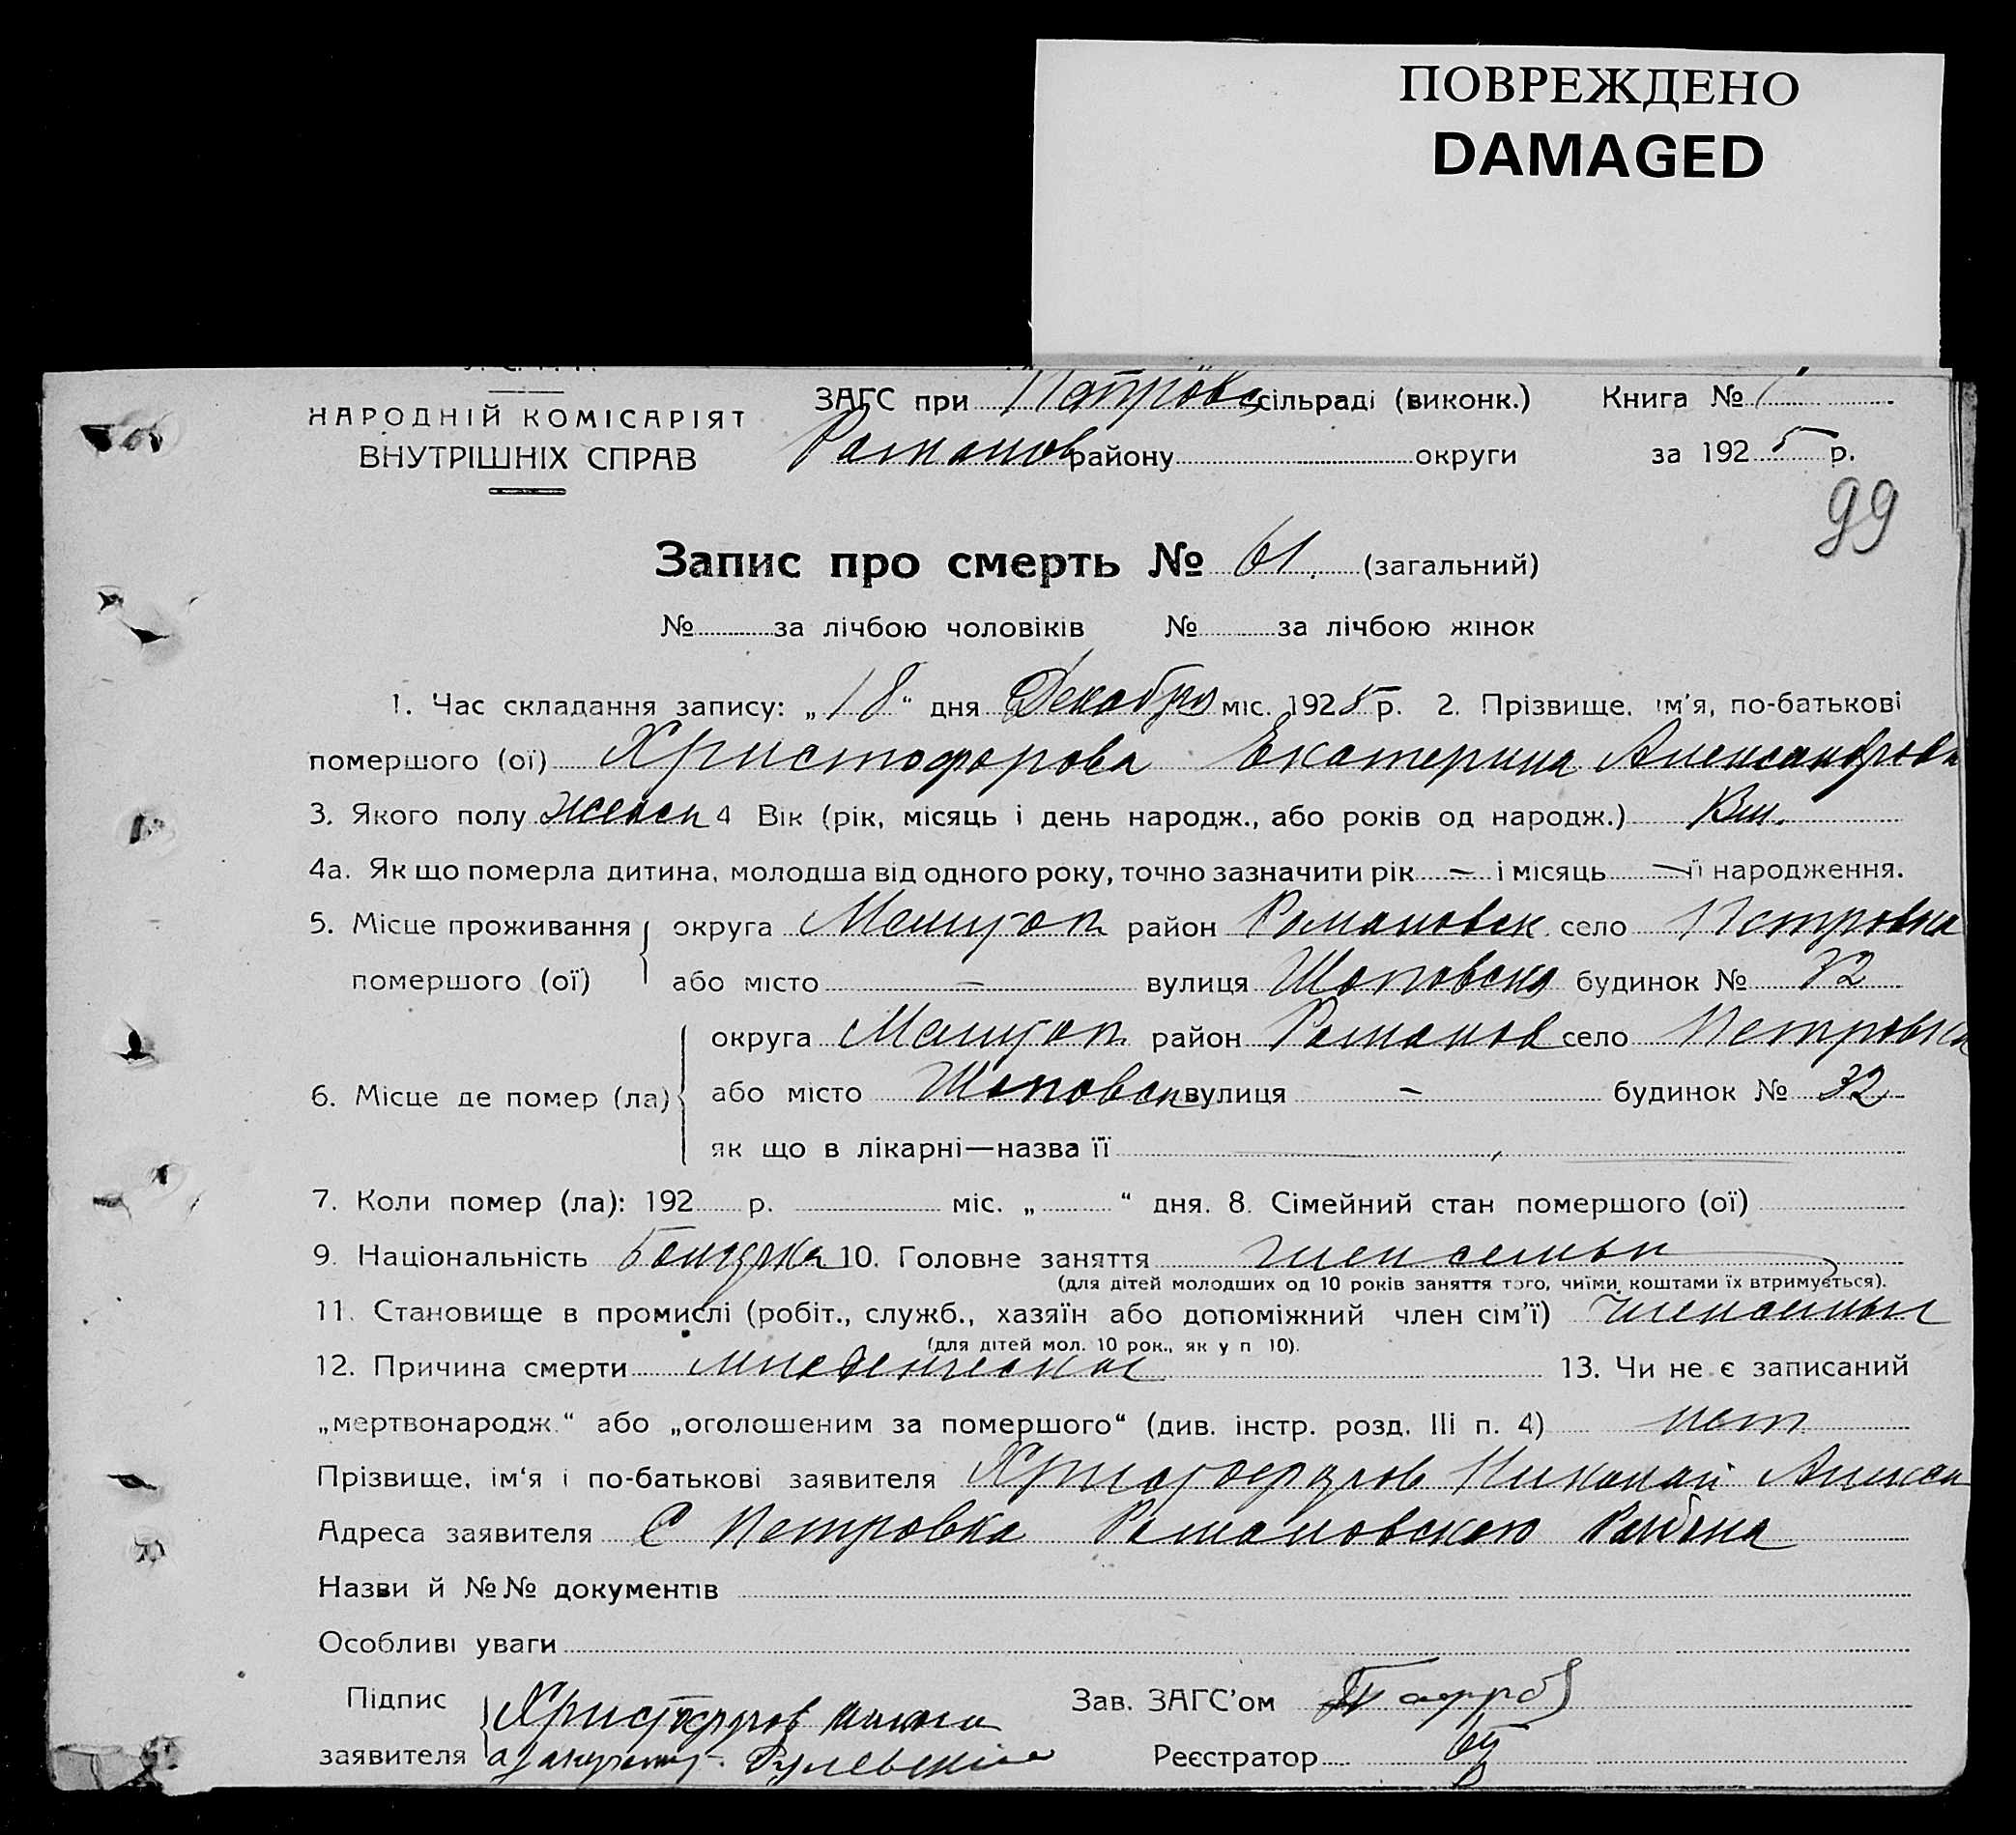 ПОВРЕЖДЕНО
DAMAGED
НАРОДНІЙ КОМІСАРІЯТ
ВНУТРІШНІХ СПРАВ
ЗАГС при Петровс сільраді (виконк.) Книга №
Романов району округи за 1925 р.
99
Запис про смерть № 61. (загальний)
№ за лічбою чоловіків № за лічбою жінок
1. Час складання запису: „18“ дня Декабря міс. 1925 р. 2. Прізвище, ім'я, по-батькові
помершого (ої) Христофорова Екатерина Александровн
3. Якого полу женск 4 Вік (рік, місяць і день народж., або років од народж.)
4а. Як що померла дитина, молодша від одного року, точно зазначити рік — і місяць — її народження.
5. Місце проживання округа Мелитоп район Романовск село Петровка
помершого (ої) або місто — вулиця будинок № 32
округа Мелитоп район Романов село Петровка
6. Місце де помер (ла) або місто вулиця — будинок № 32
як що в лікарні—назва її
7. Коли помер (ла): 192 р. міс. „ “ дня. 8. Сімейний стан помершого (ої)
9. Національність Болгарка 10. Головне заняття член семьи
(для дітей молодших од 10 років заняття того, чиїми коштами їх втримується).
11. Становище в промислі (робіт., служб., хазяїн або допоміжний член сім'ї) член семьи
(для дітей мол. 10 рок., як у п 10).
12. Причина смерти младенческая 13. Чи не є записаний
„мертвонародж.“ або „оголошеним за помершого“ (див. інстр. розд. III п. 4) нет
Прізвище, ім'я і по-батькові заявителя Христофоров Николай Алексан
Адреса заявителя С Петровка Романовского Района
Назви й №№ документів
Особливі уваги
Підпис Христофоров Зав. ЗАГС'ом
заявителя Реєстратор